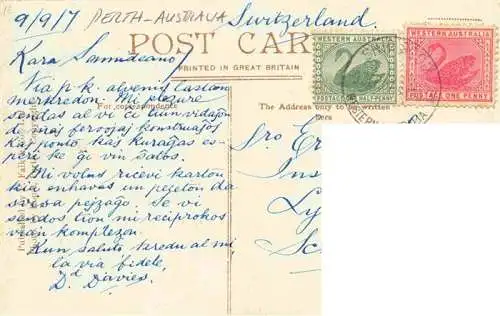 9/9/7 PERTH-AUSTRALIA
Switzerland.
POST CAR
PRINTED IN GREAT BRITAIN
WESTERN AUSTRALIA
POSTAGE HALF-PENNY
WESTERN AUSTRALIA
POSTAGE ONE PENNY
For correspondence
The Address only to be written
here
Kara Samideano,
Via p.k. alvenis lastan
merkredon. Mi plezure
sendas al vi ĉi tiun vidaĵon
de nia
kaj ponto, kaj kuraĝas es-
peri ke ĝi vin ŝatos.
Mi volus ricevi karton
kiu enhavus un pezeton da
svisa pejzaĝo. Se vi
sendos tion mi reciprokos
vian komplezon.
Kun saluto restadu al mi
la via fidele,
Dd Davies.
Sro
Ins
Ly
Sc